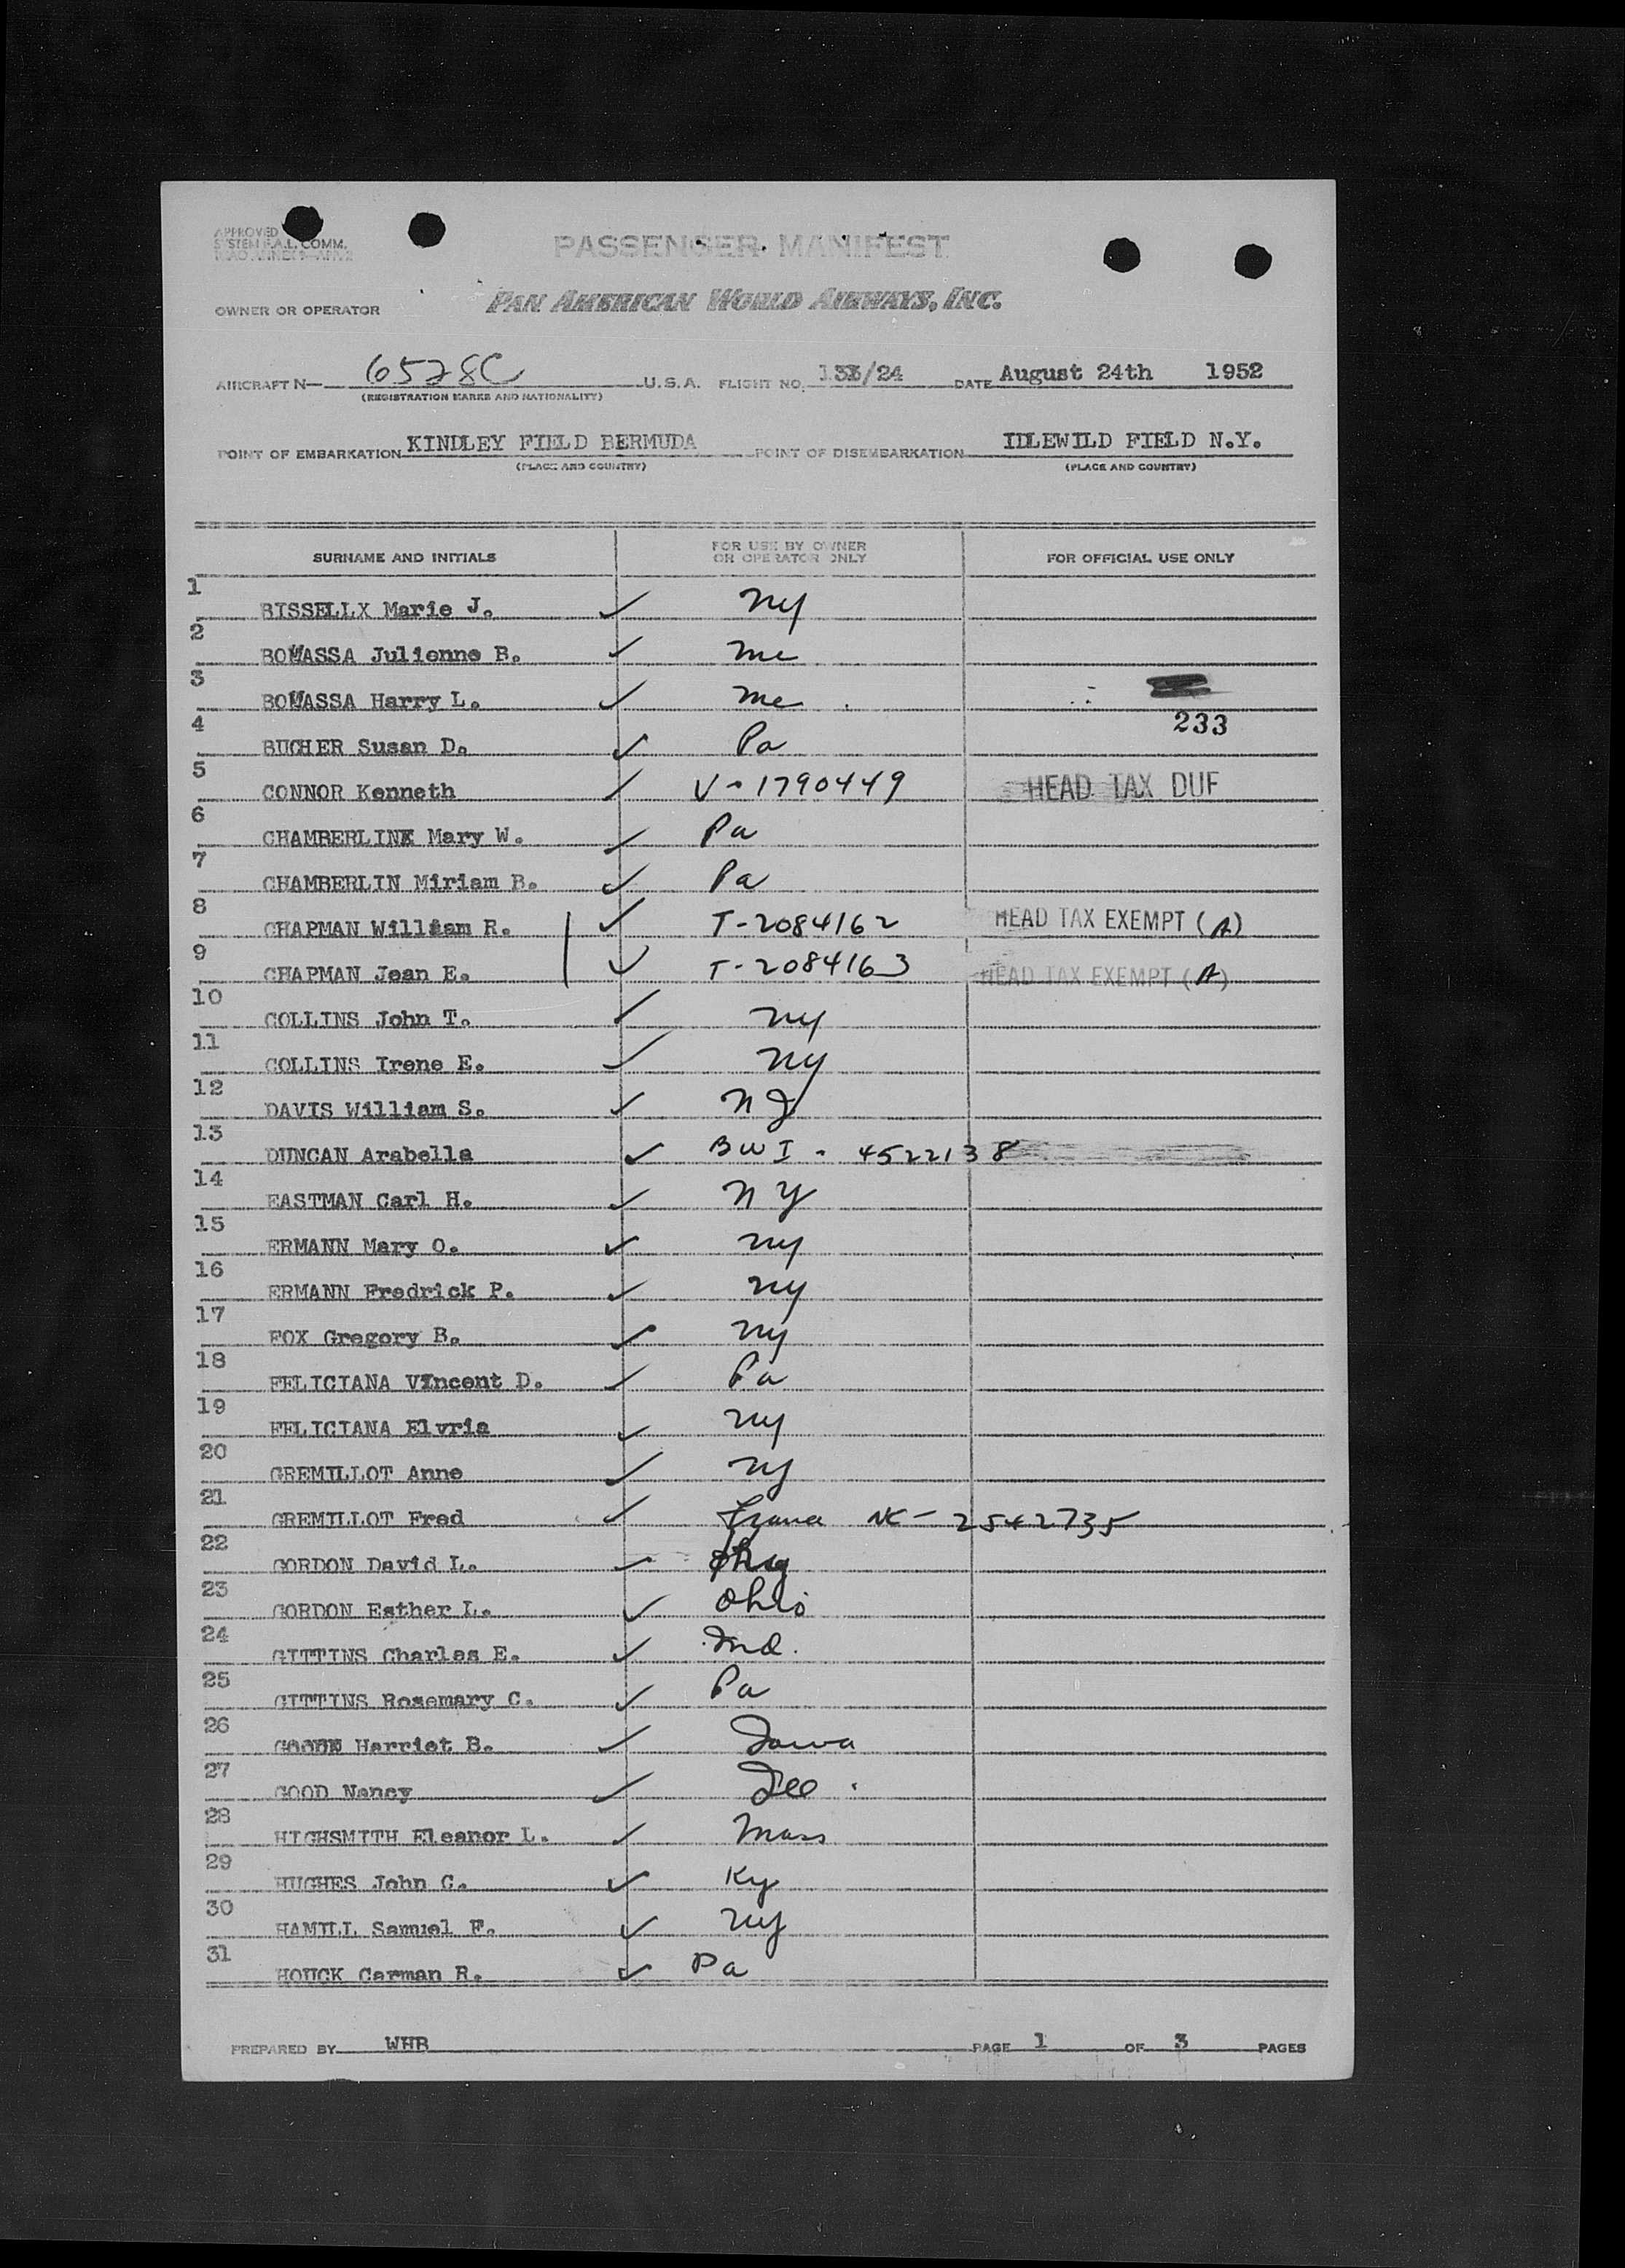 APPROVED
SYSTEM F.A.L. COMM.
ICAO ANNEX 9—APP. 2
PASSENGER MANIFEST
OWNER OR OPERATOR PAN AMERICAN WORLD AIRWAYS, INC.
AIRCRAFT N— 6528C U.S.A. FLIGHT NO. 133/24 DATE August 24th 1952
(REGISTRATION MARKS AND NATIONALITY)
POINT OF EMBARKATION KINDLEY FIELD BERMUDA POINT OF DISEMBARKATION IDLEWILD FIELD N.Y.
(PLACE AND COUNTRY) (PLACE AND COUNTRY)
SURNAME AND INITIALS FOR USE BY OWNER OR OPERATOR ONLY FOR OFFICIAL USE ONLY
1 BISSELLX Marie J. ✓ NY
2 BOMASSA Julienne B. ✓ Me
3 BOMASSA Harry L. ✓ Me
233
4 BUCHER Susan D. ✓ Pa
5 CONNOR Kenneth ✓ V-1790449 HEAD TAX DUE
6 CHAMBERLINX Mary W. ✓ Pa
7 CHAMBERLIN Miriam B. ✓ Pa
8 CHAPMAN William R. ✓ T-2084162 HEAD TAX EXEMPT (A)
9 CHAPMAN Jean E. ✓ T-2084163 HEAD TAX EXEMPT (A)
10 COLLINS John T. ✓ NY
11 COLLINS Irene E. ✓ NY
12 DAVIS William S. ✓ NJ
13 DUNCAN Arabella ✓ BWI - 4522138
14 EASTMAN Carl H. ✓ NY
15 ERMANN Mary O. ✓ NY
16 ERMANN Fredrick P. ✓ NY
17 FOX Gregory B. ✓ NY
18 FELICIANA Vincent D. ✓ Pa
19 FELICIANA Elvria ✓ NY
20 GREMILLOT Anne ✓ NJ
21 GREMILLOT Fred ✓ NC- 2542735
22 GORDON David L. ✓
23 GORDON Esther L. ✓ Ohio
24 GITTINS Charles E. ✓ Ind.
25 GITTINS Rosemary C. ✓ Pa
26 Harriet B. ✓ Iowa
27 GOOD Nancy ✓ Ill
28 HIGHSMITH Eleanor L. ✓ Mass
29 HUGHES John C. ✓ Ky
30 HAMILL Samuel F. ✓ NY
31 HOUCK Carman R. ✓ Pa
PREPARED BY WHB PAGE 1 OF 3 PAGES